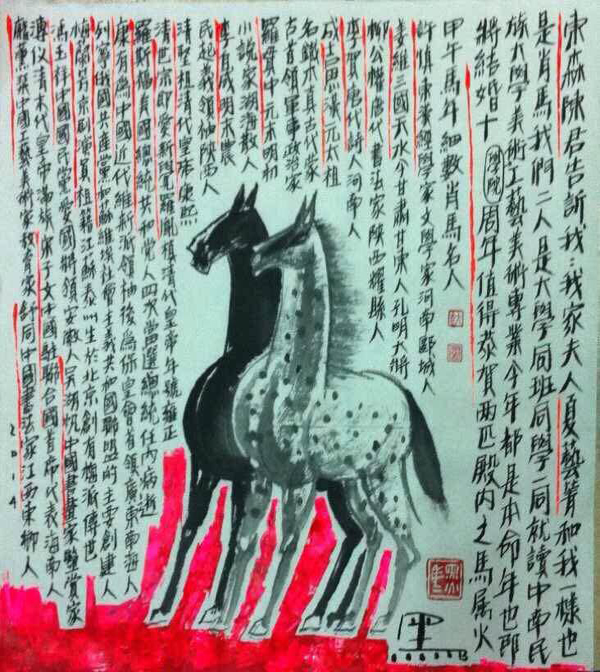 東森陳君告訴我：我家夫人夏藝菁和我一樣也
是肖馬我們二人是大學同班同學二同就讀中南民
族大學美術工藝美術專業今年都是本命年也即
將結婚十學院周年值得恭賀兩匹殿内之馬属火
甲午馬年細數肖馬名人
許慎東漢經學家文學家河南郾城人
姜維三國天水今甘肅甘東人孔明大將
柳公權唐代書法家陝西耀縣人
李賀唐代詩人河南人
成吉思漢元太祖
名鐵木真古代蒙
古首領軍事政治家
羅貫中元末明初
小說家湖海散人
李自成明末農
民起義領袖陝西人
清聖祖清代皇帝康熙
清世宗即愛新覺羅胤禛清代皇帝年號雍正
羅斯福美國總統共和党人四次當選總統任内病逝
康有為中國近代維新派領袖後為保皇會首領廣東南海人
列寧俄國共產党和蘇維埃社會主義共和國聯盟的主要創建人
梅蘭芳京劇演員祖籍江蘇泰州生於北京創有梅派傳世
馮玉祥中國國民党愛國將領安徽人吴湖帆中國書畫家鑒賞家
溥仪清末代皇帝滿族宋子文中國駐聯合國首席代表海南人
龐薰琹中國工藝美術家教育家舒同中國書法家江西東鄉人
2014